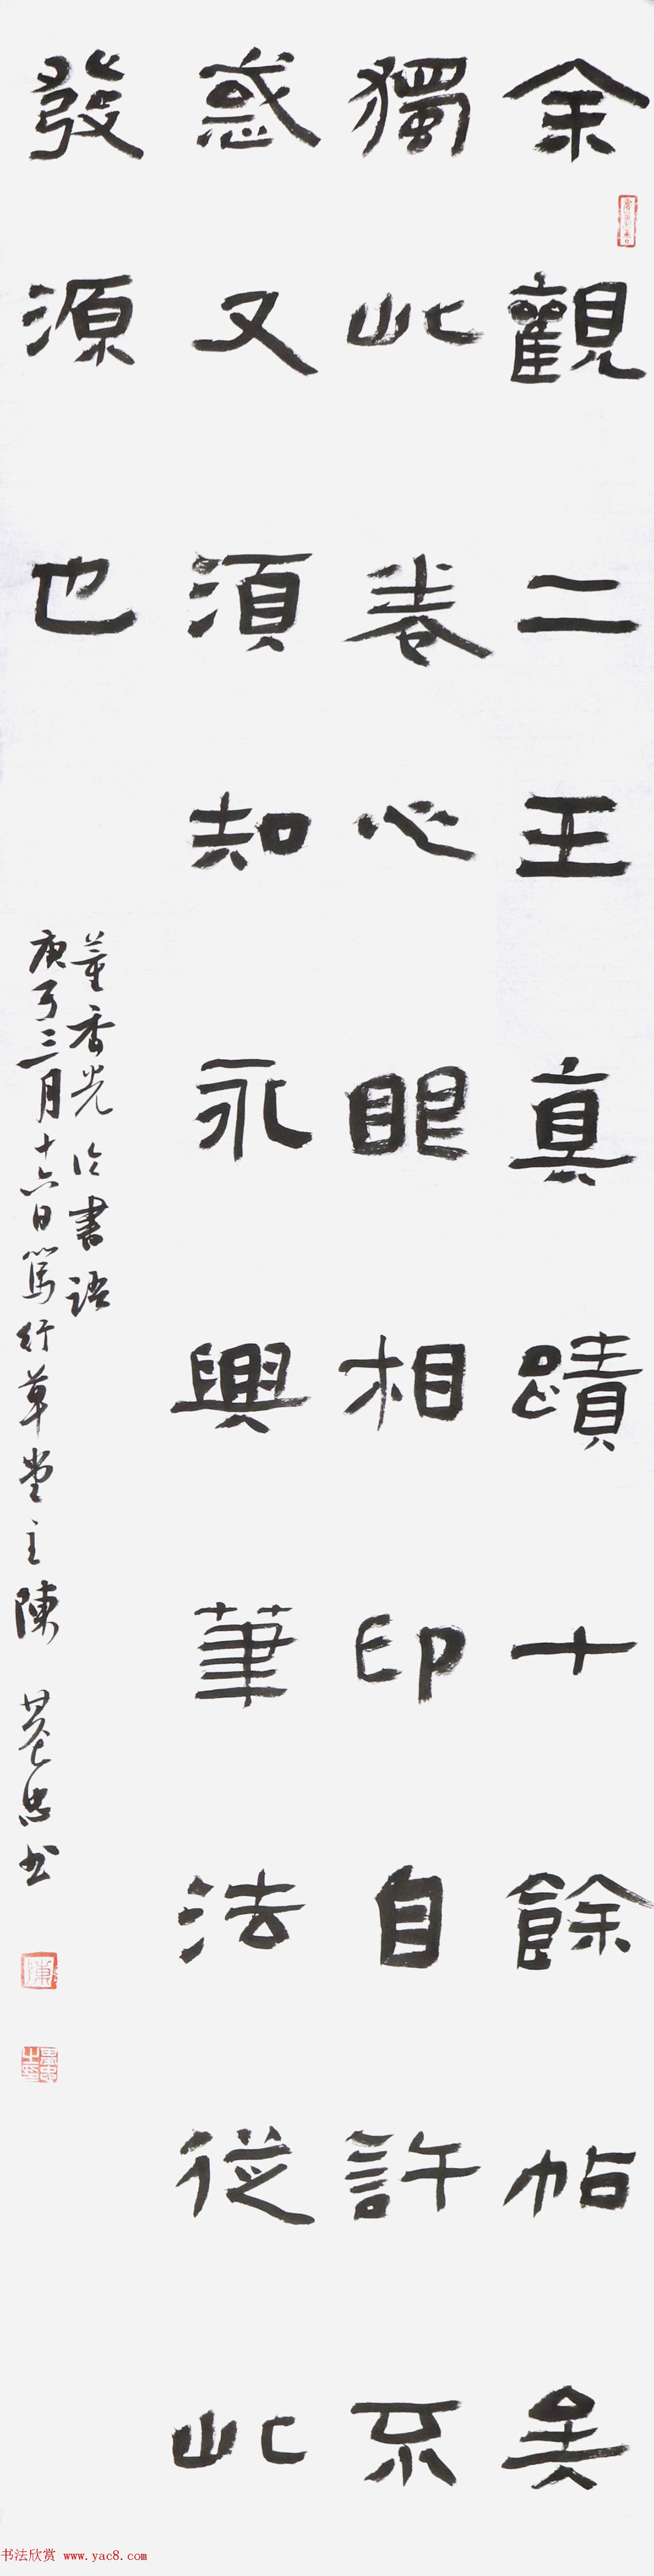 余觀二王真蹟十餘帖矣
獨此卷心眼相印自許不
惑又須知永興筆法從此
發源也
董香光论書語
庚子三月十六日篤行草堂主陳忠书
陳
书法欣赏 www.yac8.com